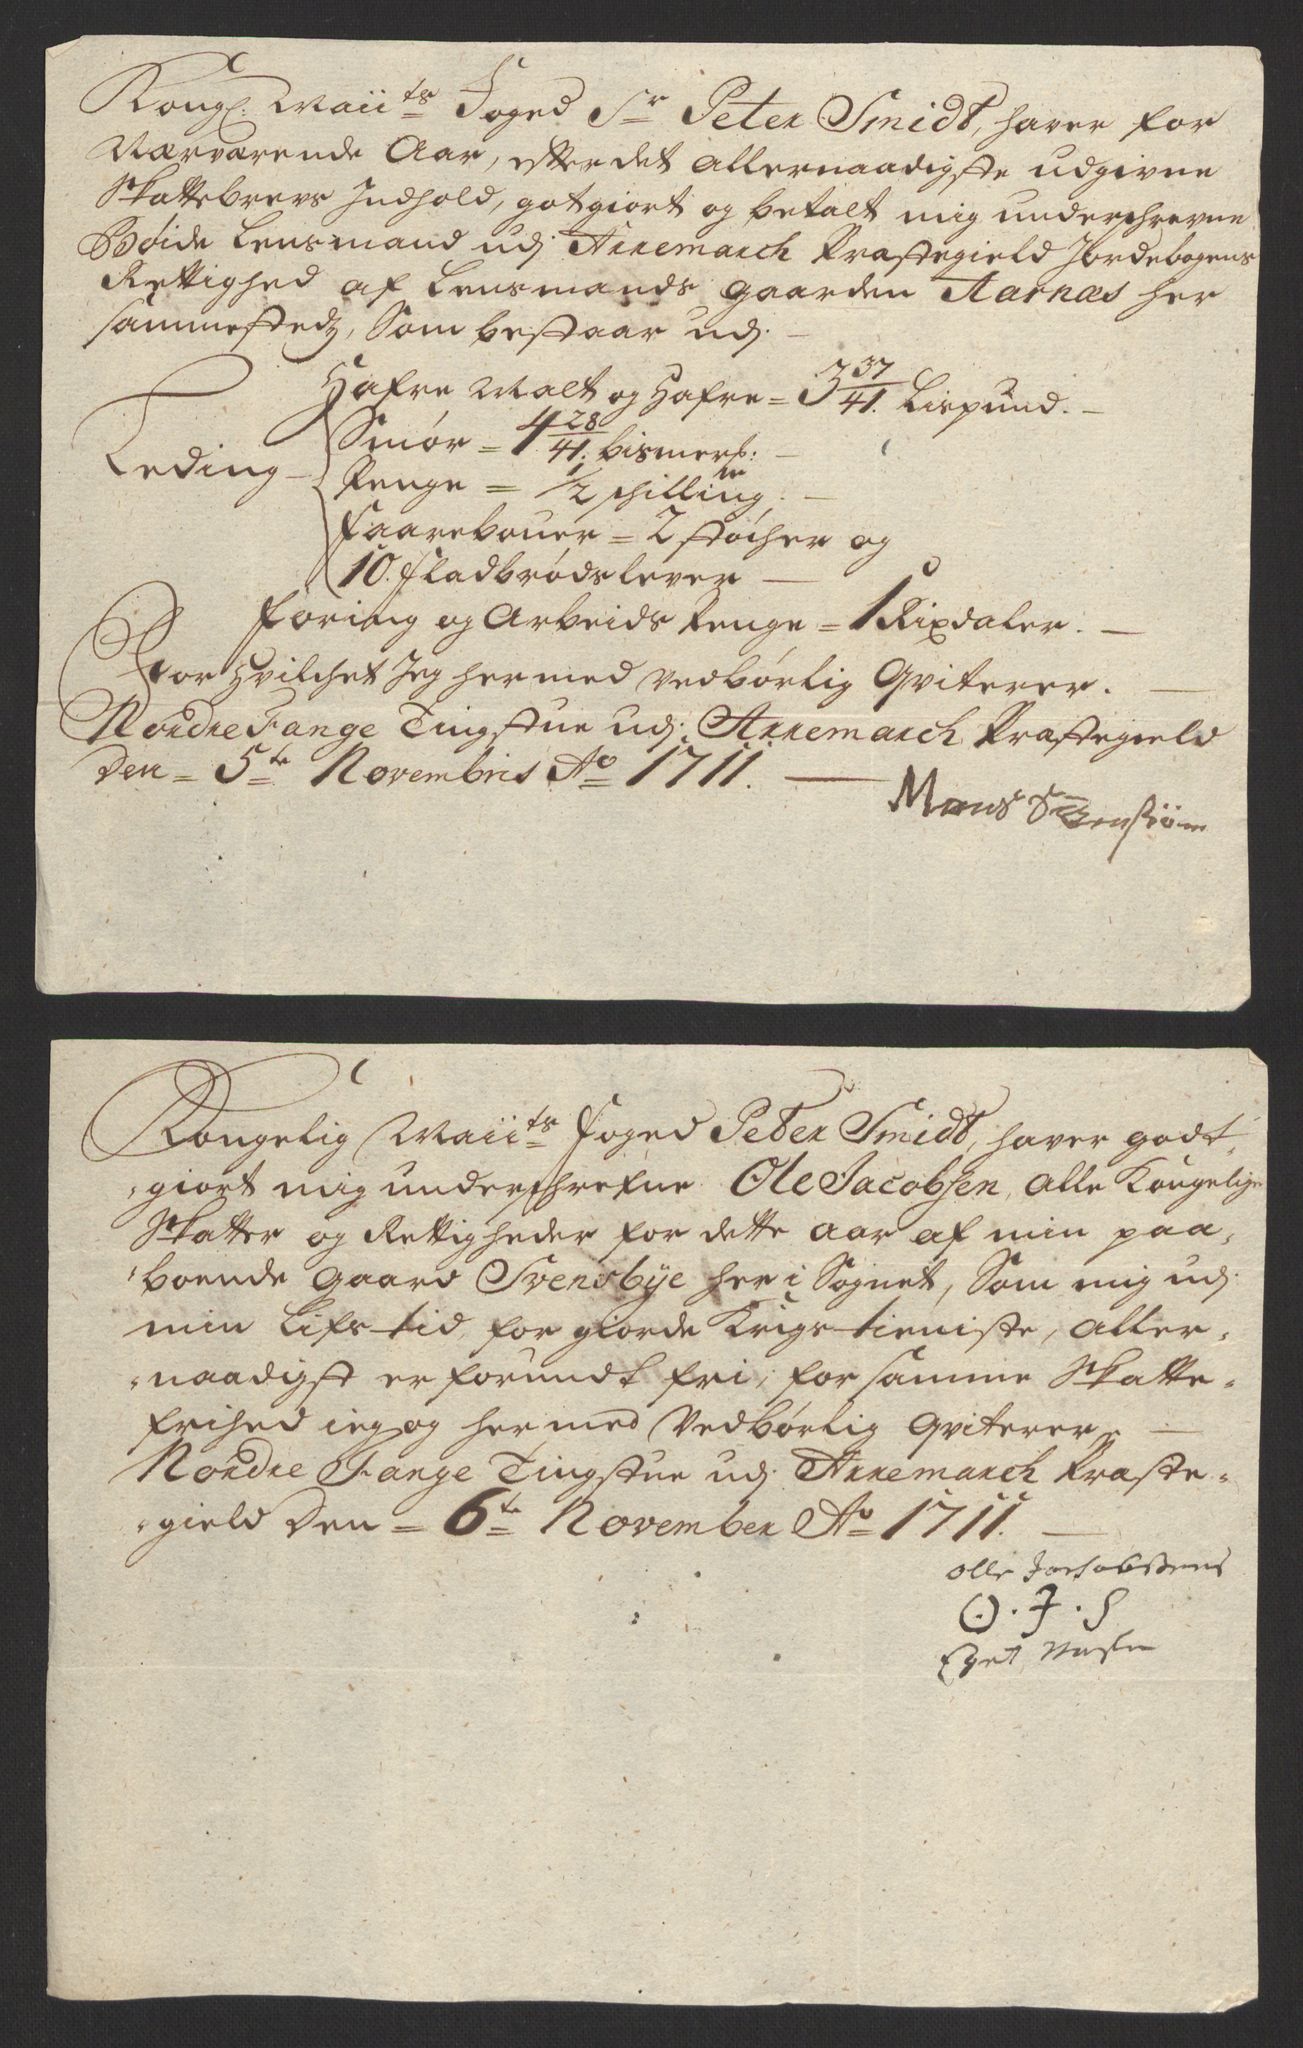 Kongl. Maiits Foged Sr Peter Smidt, haver for
Nærværende Aar, efter det allernaadigste udgivne
Skattebrevs Indhold, gotgiort og betalt mig underschrevne
Böide Lensmand udj Arremarch Præstegield Jordebogens
Rettighed af Lensmands gaarden Aarnæs her
sammestedz, Som bestaar udj. —
Hafre Malt og Hafre = 3 37/41. Lispund. —
Smör = 4 28/41. bismerp: —
Leding — Penge = 1/2 schilling. —
Faarebouer = 2 støcher og
10. fladbrøds lever —
Foring og Arbeids Penge = 1 Rixdaler. —
For Hvilchet Jeg hermed vedbörlig Qviterer. —
Nordre Fange Tingstue udj. Arremarch Præstegield
Den = 5te Novembris Ao 1711. —
Mons
Kongelig Maiits Foged Peter Smidt, haver godt-
giort mig underschrefne Ole Jacobsen, alle Kongelige
Skatter og Rettigheder for dette aar af min paa-
boende gaard Svensbÿe her i Sognet, Som mig udj
min Lifs tid, for giorde Krigs tieniste, aller-
naadigst er forundt fri, for samme Skatte-
frihed ieg og hermed Vedbörlig Qviterer, —
Nordre Fange Tingstue udj. Arremarch Præste-
gield Den = 6te November Ao 1711. —
Olle Jachobsens
O. J. S